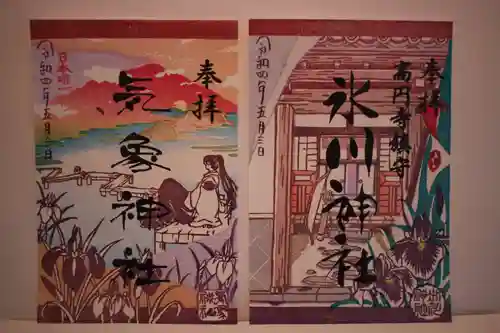 奉拝
気象神社
日本唯一
令和四年五月三日
奉拝
高円寺鎮守
氷川神社
令和四年五月三日